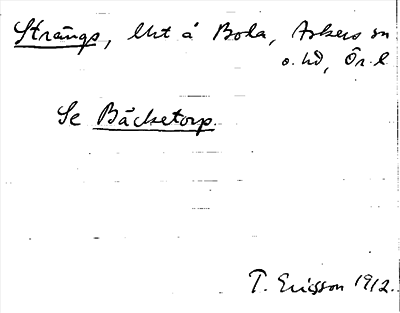 Strängs, lht å Boda, Askers sn
o. hd, Ör. l
Se Bäcketorp.
T. Ericsson 1912.